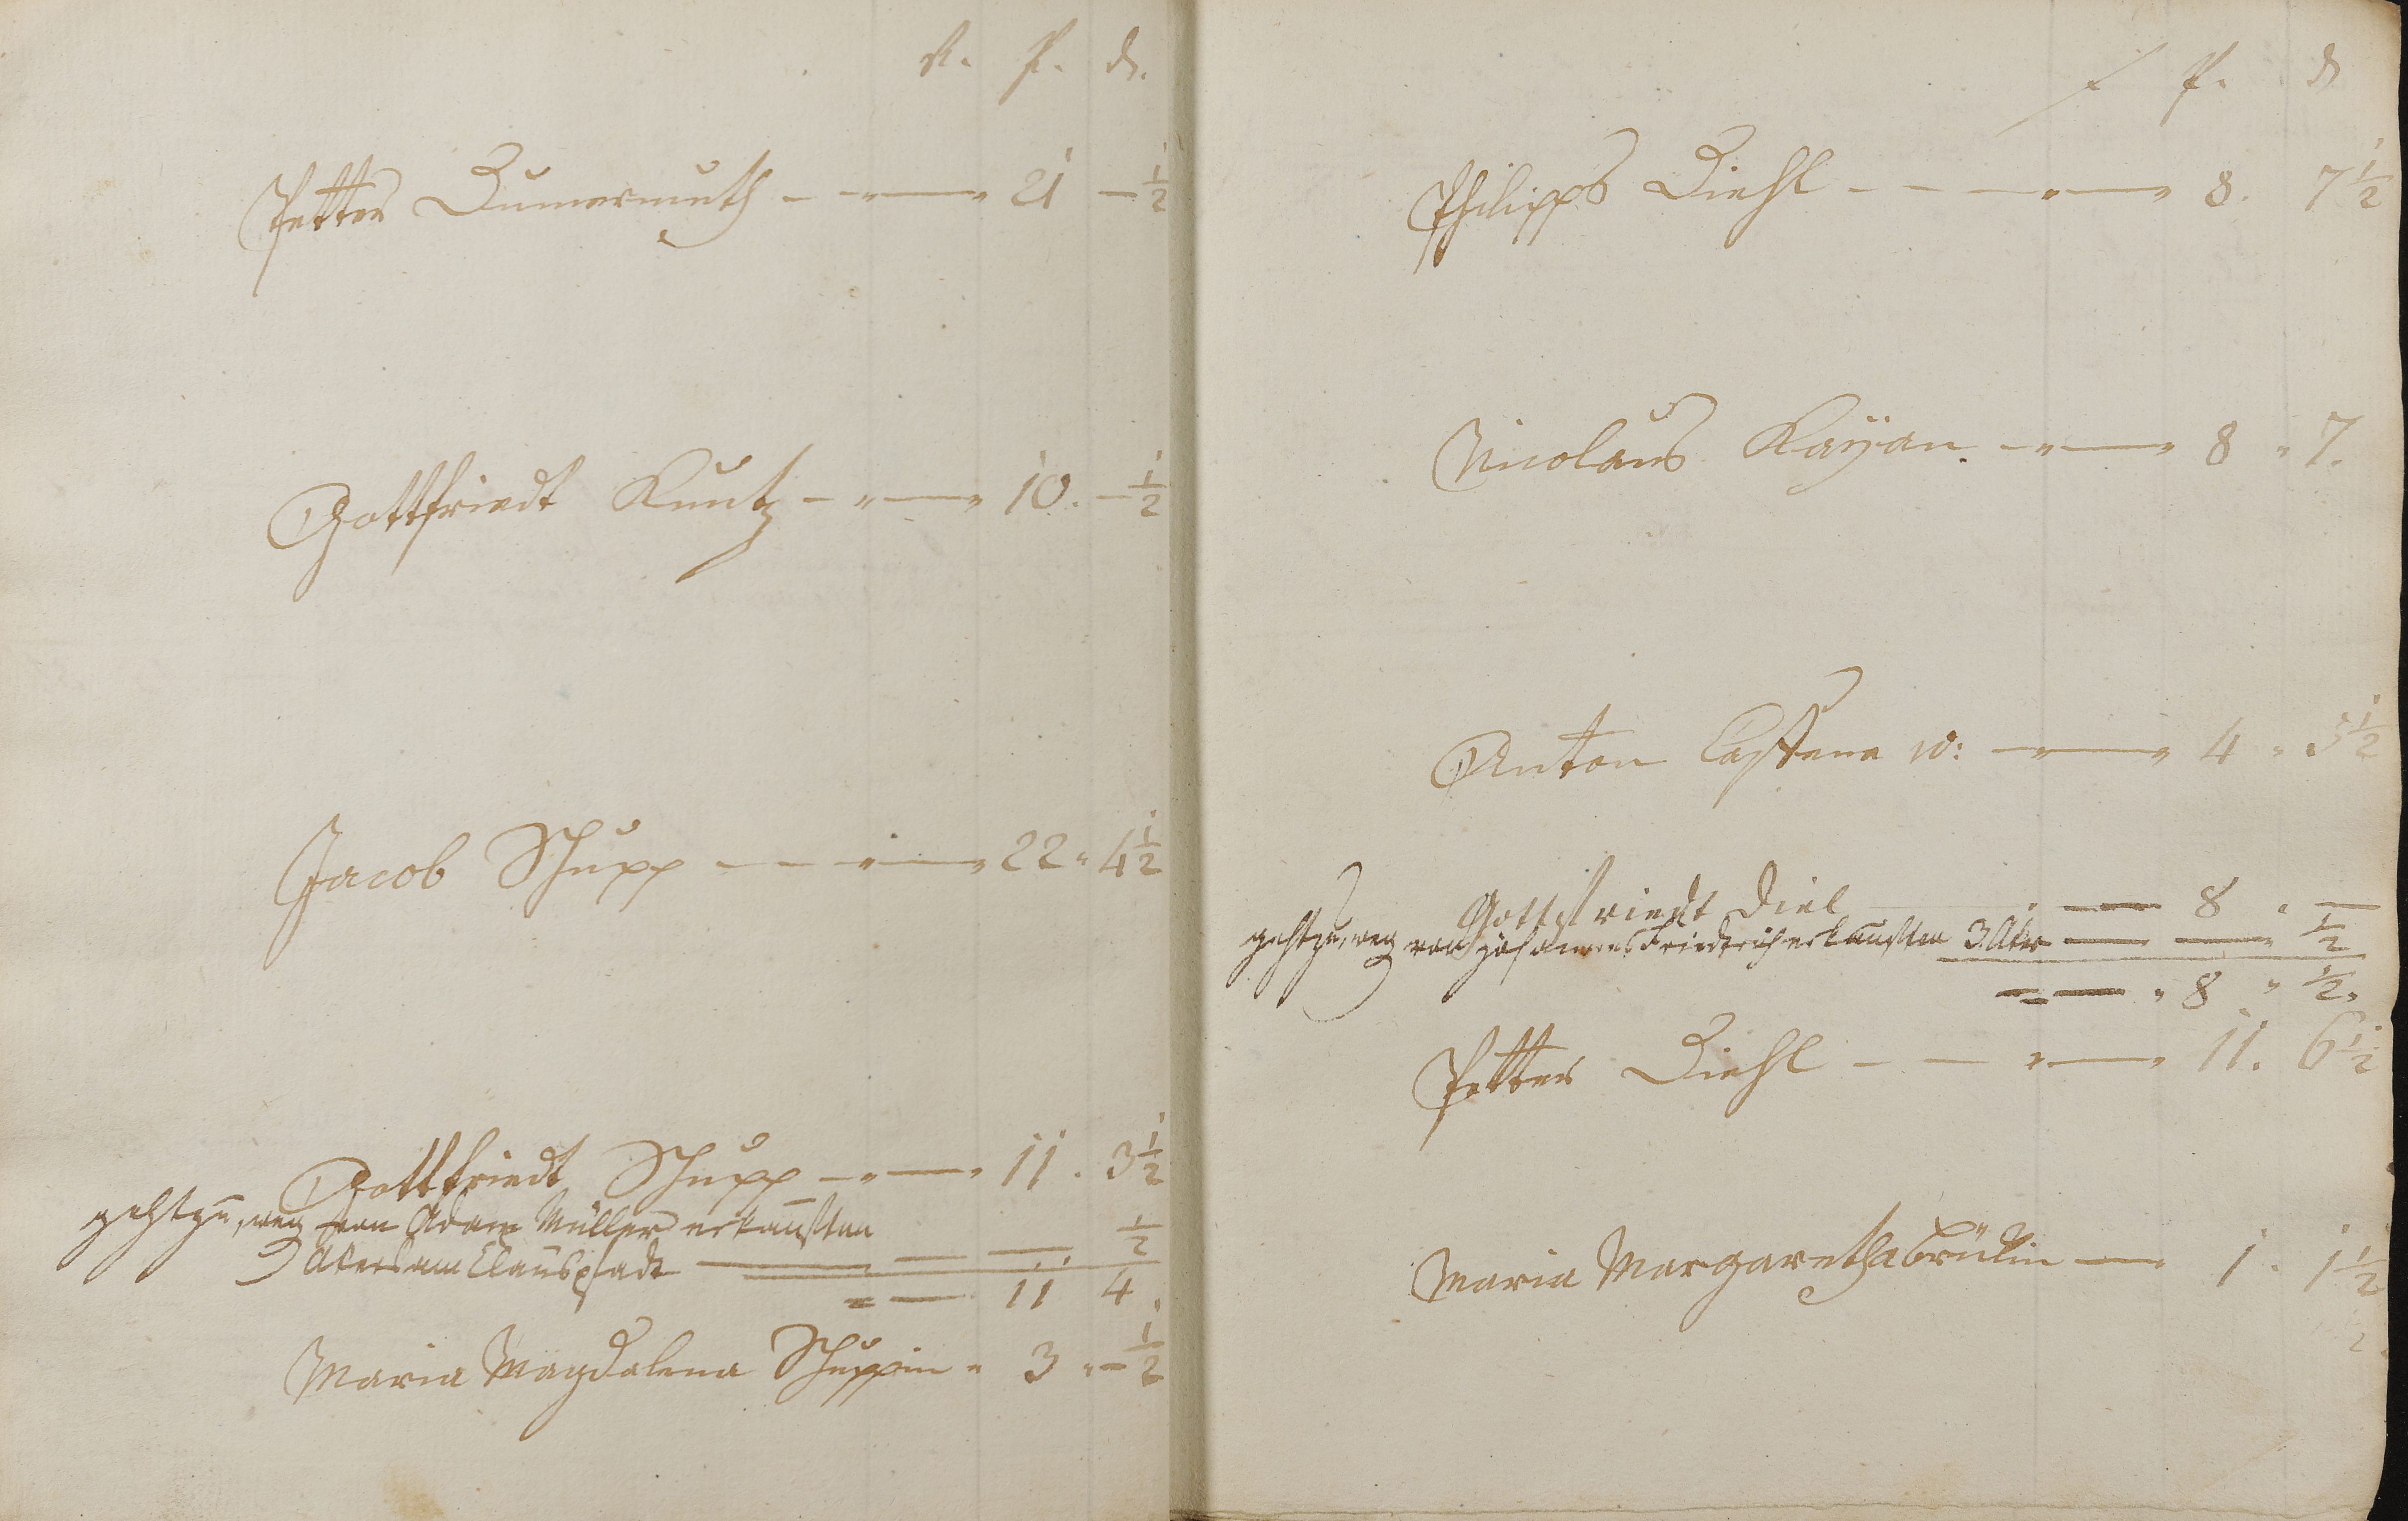 fl. ß. d.
Petter Dumermuth - - " — " 21 - ½
Gottfriedt Kuntz - " — " 10. - ½
Jacob Schupp - - " — " 22 " 4½
Gottfriedt Schupp - " — " 11. 3½
geht zu, weg von Adam Müller erkaufften
Akers am Clauspfadt — — — ½
= — 11 4.
Maria Magdalena Schuppin " 3 " - ½
f ß. d
Philipps Diehl - - - " — " 8. 7½
Nicolaus Kayan. - " — " 8 " 7.
Anton Castene w: — " — " 4 " 3½
Gottfriedt Diel — 8 " —
geht zu, weg von Johannes Friedrich erkaufften 3. Aker — — " ½
= — " 8 " ½.
Petter Diehl - - " — " 11. 6½
Maria Margaretha Brükin — " 1. 1½
2